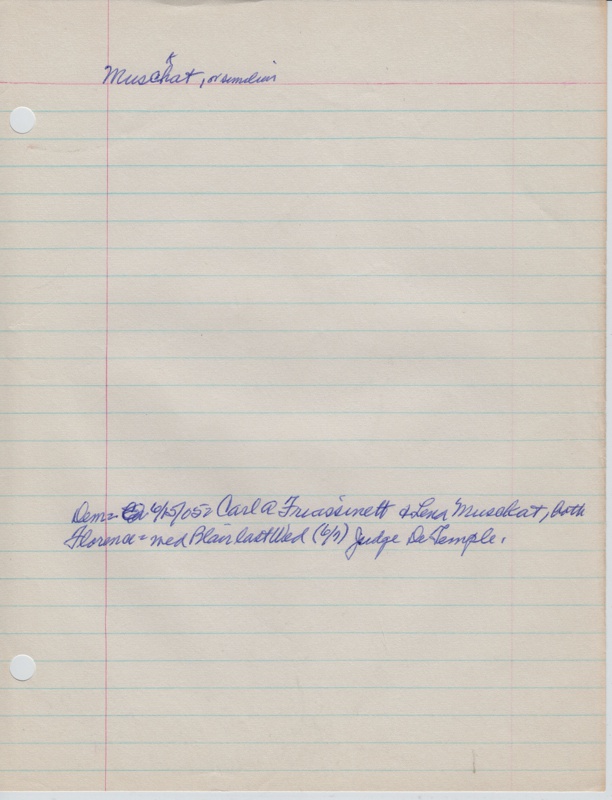 k
Muschat, or similar
Dem= 6/15/05= Carl A Friassinett & Lena Muschat, both
Florence= med Blair last Wed (6/7) Judge DeTemple.